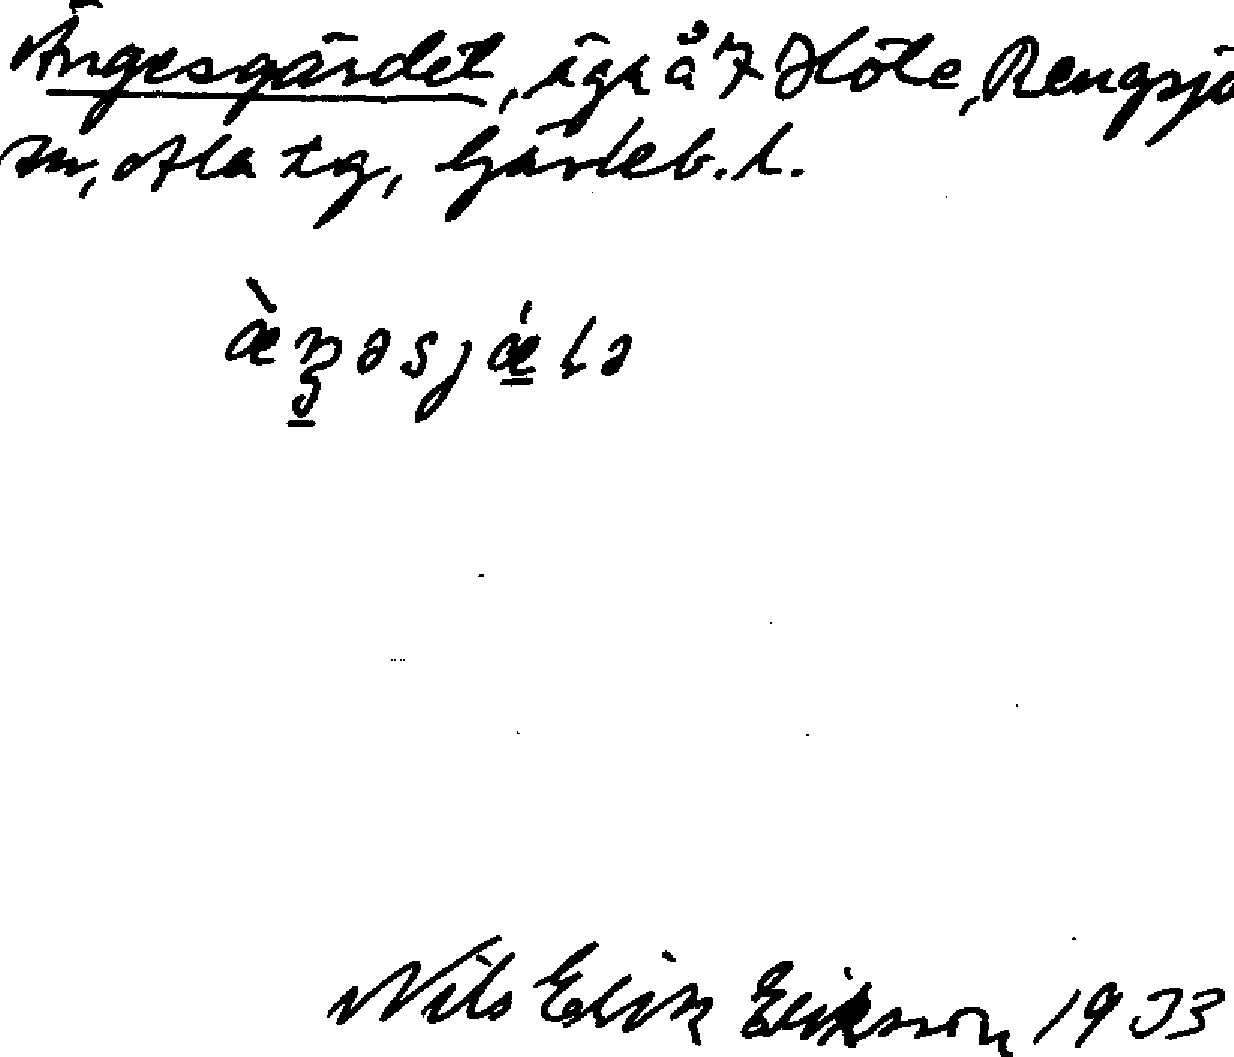 Ängesgärdet, ägr å 7 Höle, Rengsjö
sn, Ala tg, Gävleb. l.
æ̀ŋəsjǽ̲lə
Nils Erik Eriksson 1933